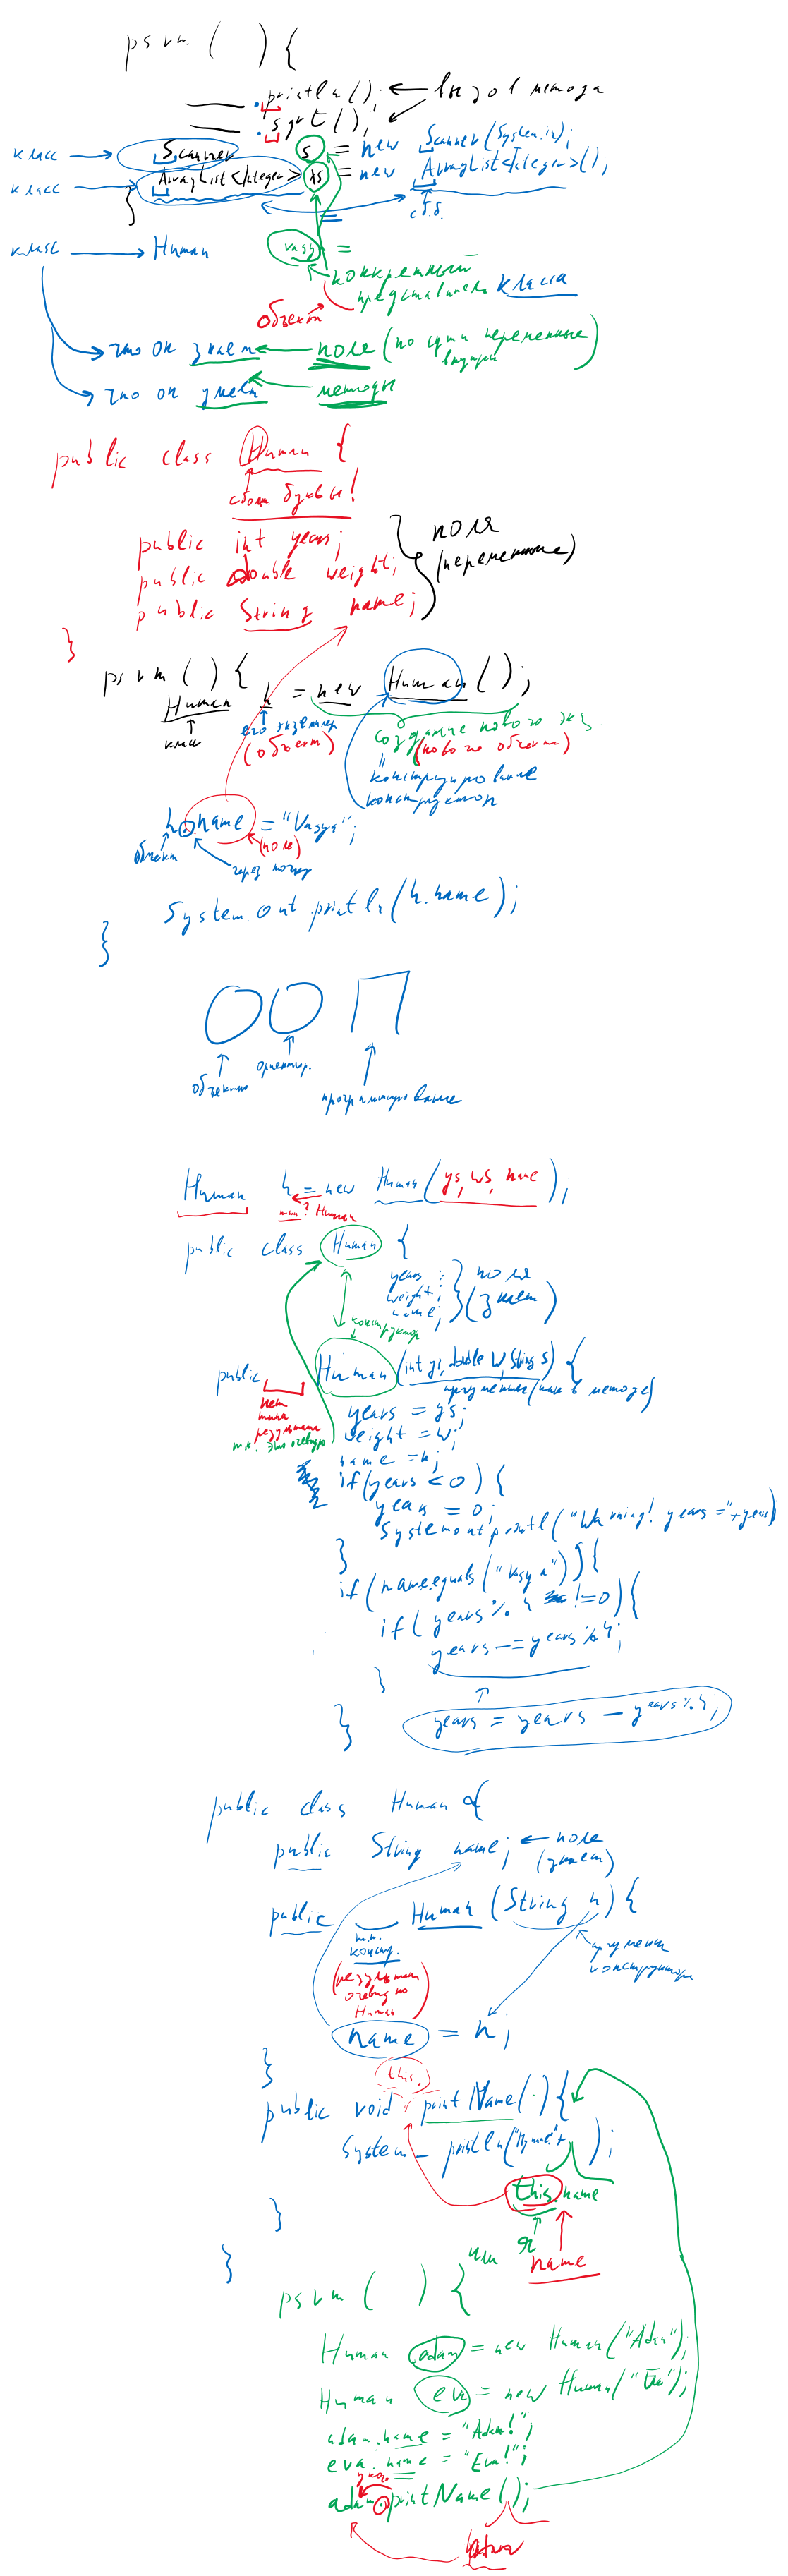 psvm ( ) {
.println(); ← вызов метода
.sqrt();
класс → Scanner s = new Scanner(System.in);
класс → ArrayList<Integer> as = new ArrayList<Integer>();
с б.б.
класс → Human vasya =
конкретный
представитель класса
объект
что он знает ← поле (по сути переменные
внутри)
что он умеет ← методы
public class Human {
с бол. буквы!
public int years;
public double weight;
public String name;
поля
(переменные)
}
psvm ( ) {
Human h = new Human ();
класс
его экземпляр
(объект)
создание нового экз.
(нового объекта)
"
конструирование
конструктор
h.name = "Vasya";
объект
(поле)
через точку
System.out.println(h.name);
}
ООП
объектно
ориентир.
программирование
Human h = new Human (ys, ws, name);
тип? Human
public class Human {
years;
weight;
name;
поля
(знает)
конструктор
public Human (int ys, double w, String s) {
аргументы (как в методе)
нет
типа
результата
т.к. это очевидно
years = ys;
weight = w;
name = n;
if (years < 0) {
years = 0;
System.out.printl("Warning! years ="+years)
}
if (name.equals("Vasya")) {
if (years % 4 != 0) {
years -= years % 4;
}
years = years - years % 4;
}
public class Human {
public String name; ← поле
(знает)
public Human (String n) {
т.к.
констр.
(результат
очевидно
Human)
аргумент
конструктора
name = n;
}
this.
public void printName() {
System_println("My name" + );
this.name
}
я
name
}
psvm ( ) {
Human adam = new Human ("Adam");
Human eva = new Human ("Eva");
adam.name = "Adam!";
eva.name = "Eva!";
у кого
adam.printName();